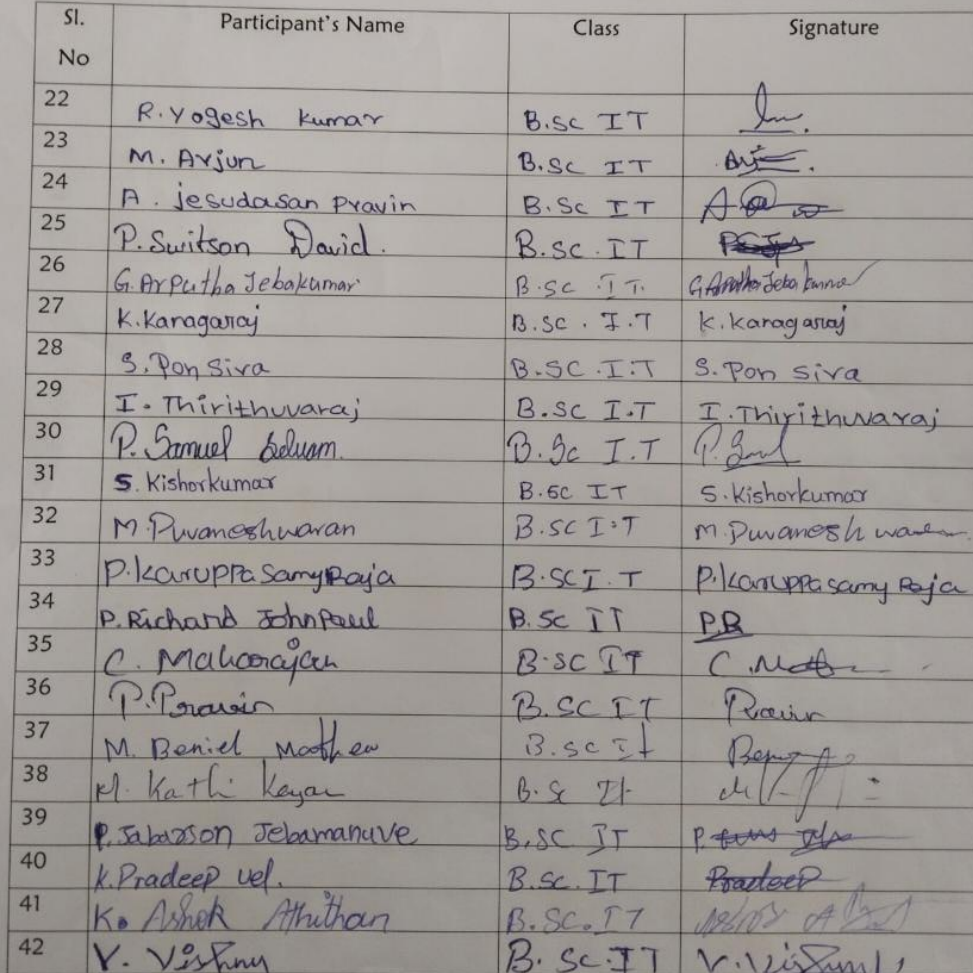 Sl. No Participant's Name Class Signature
22 R. Yogesh Kumar B.Sc IT
23 M. Arjun B.Sc IT
24 A. jesudasan pravin B.Sc IT
25 P. Switson David. B.Sc. IT
26 G. Arputha Jebakumar B.Sc. IT. G. Arputha Jebakumar
27 K. Kanagaraj B.Sc. I.T K. Kanagaraj
28 S. Pon Siva B.SC.I.T S. Pon siva
29 I. Thirithuvaraj B.Sc I.T I. Thirithuvaraj
30 P. Samuel Selvam. B.Sc I.T
31 S. Kishorkumar B.sc IT S. Kishorkumar
32 M. Puvaneshwaran B.sc I.T M. Puvaneshwaran
33 P. Karuppa Samy Raja B.SC I.T P. Karuppasamy Raja
34 P. Richard John Paul B.Sc IT PR
35 C. Maharajan B.SC IT
36 P. Pravin B.SC IT Pravin
37 M. Beniel Mathew B.sc It
38 Kathi B.Sc It
39 P. Jabazson Jebamanuve B.SC IT
40 K. Pradeep vel. B.Sc. IT Pradeep
41 K. Ashok Athithan B.SC. IT
42 V. Vishnu B. Sc. IT